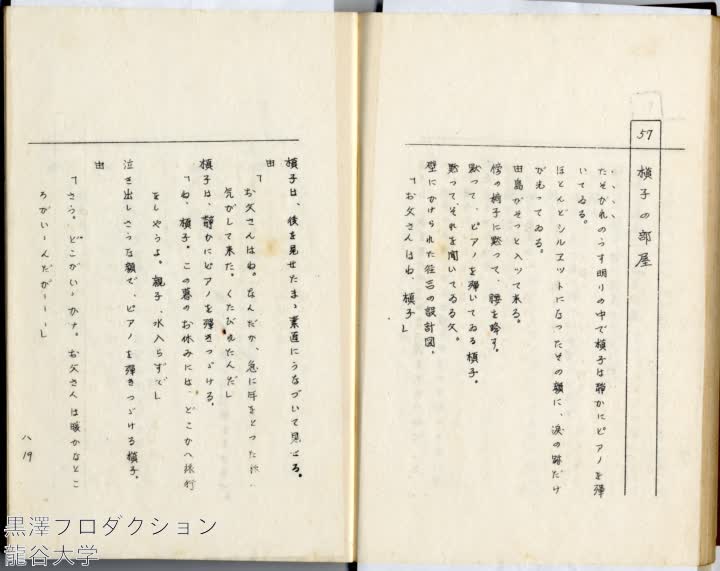 57
槙子の部屋
たそがれのうす明りの中で槙子は静かにピアノを彈
いてゐる。
ほとんどシルエットになつたその顔に、涙の跡だけ
がもつてゐる。
由島がそつと入ツて来る。
傍の椅子に黙つて、腰を降す。
黙つて、ピアノを彈いてゐる槙子。
黙つて、それを聞いてゐる父。
壁にかけられた の設計図。
「お父さんはね、槙子」
槙子は、後を見せたまゝ素直にうなづいて見せる。
由
「お父さんはね。なんだか、急に年をとつた様な
気がして来た。くたびれたんだ」
槙子は、静かにピアノを彈きつゞける。
「ね、槙子。この暮のお休みには、どこかへ旅行
をしやうよ。親子、水入らずで」
泣き出しさうな顔で、ピアノを彈きつゞける槙子。
由
「さう。どこがいゝかナ。お父さんは暖かなとこ
ろがいゝんだがーーー」
八 19
黒澤プロダクション
龍谷大学